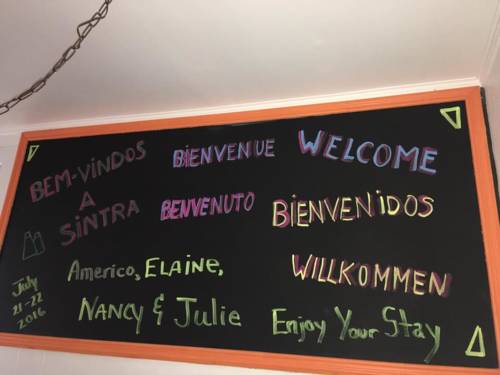 BEM-VINDOS
A
SINTRA
BIENVENUE
WELCOME
BENVENUTO
BIENVENIDOS
WILLKOMMEN
Americo, ELAINE,
NANCY & Julie
Enjoy Your Stay
July
21-22
2016